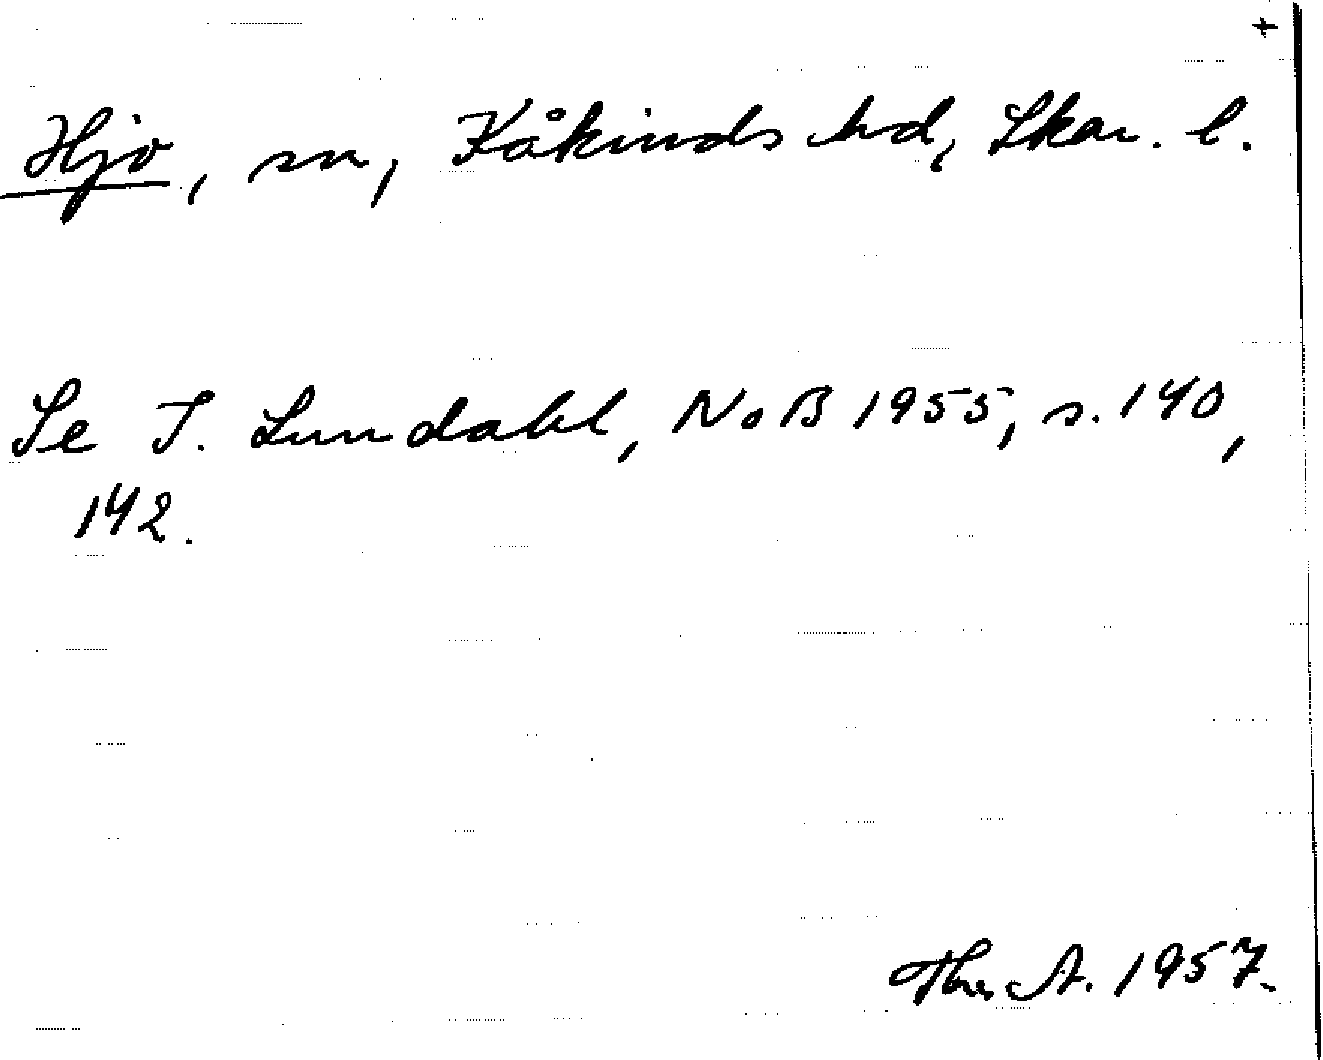 +
Hjo, sn, Kåkinds hd, Skar. l.
Se I. Lundahl, NoB 1955, s. 140,
142.
Thu A. 1957.